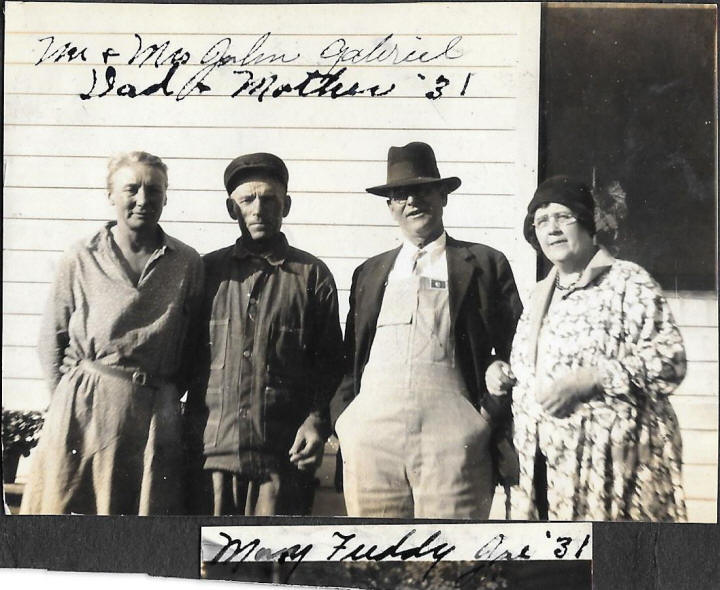 Mr + Mrs John Gabriel
Dad & Mother '31
Mary Fuddy '31